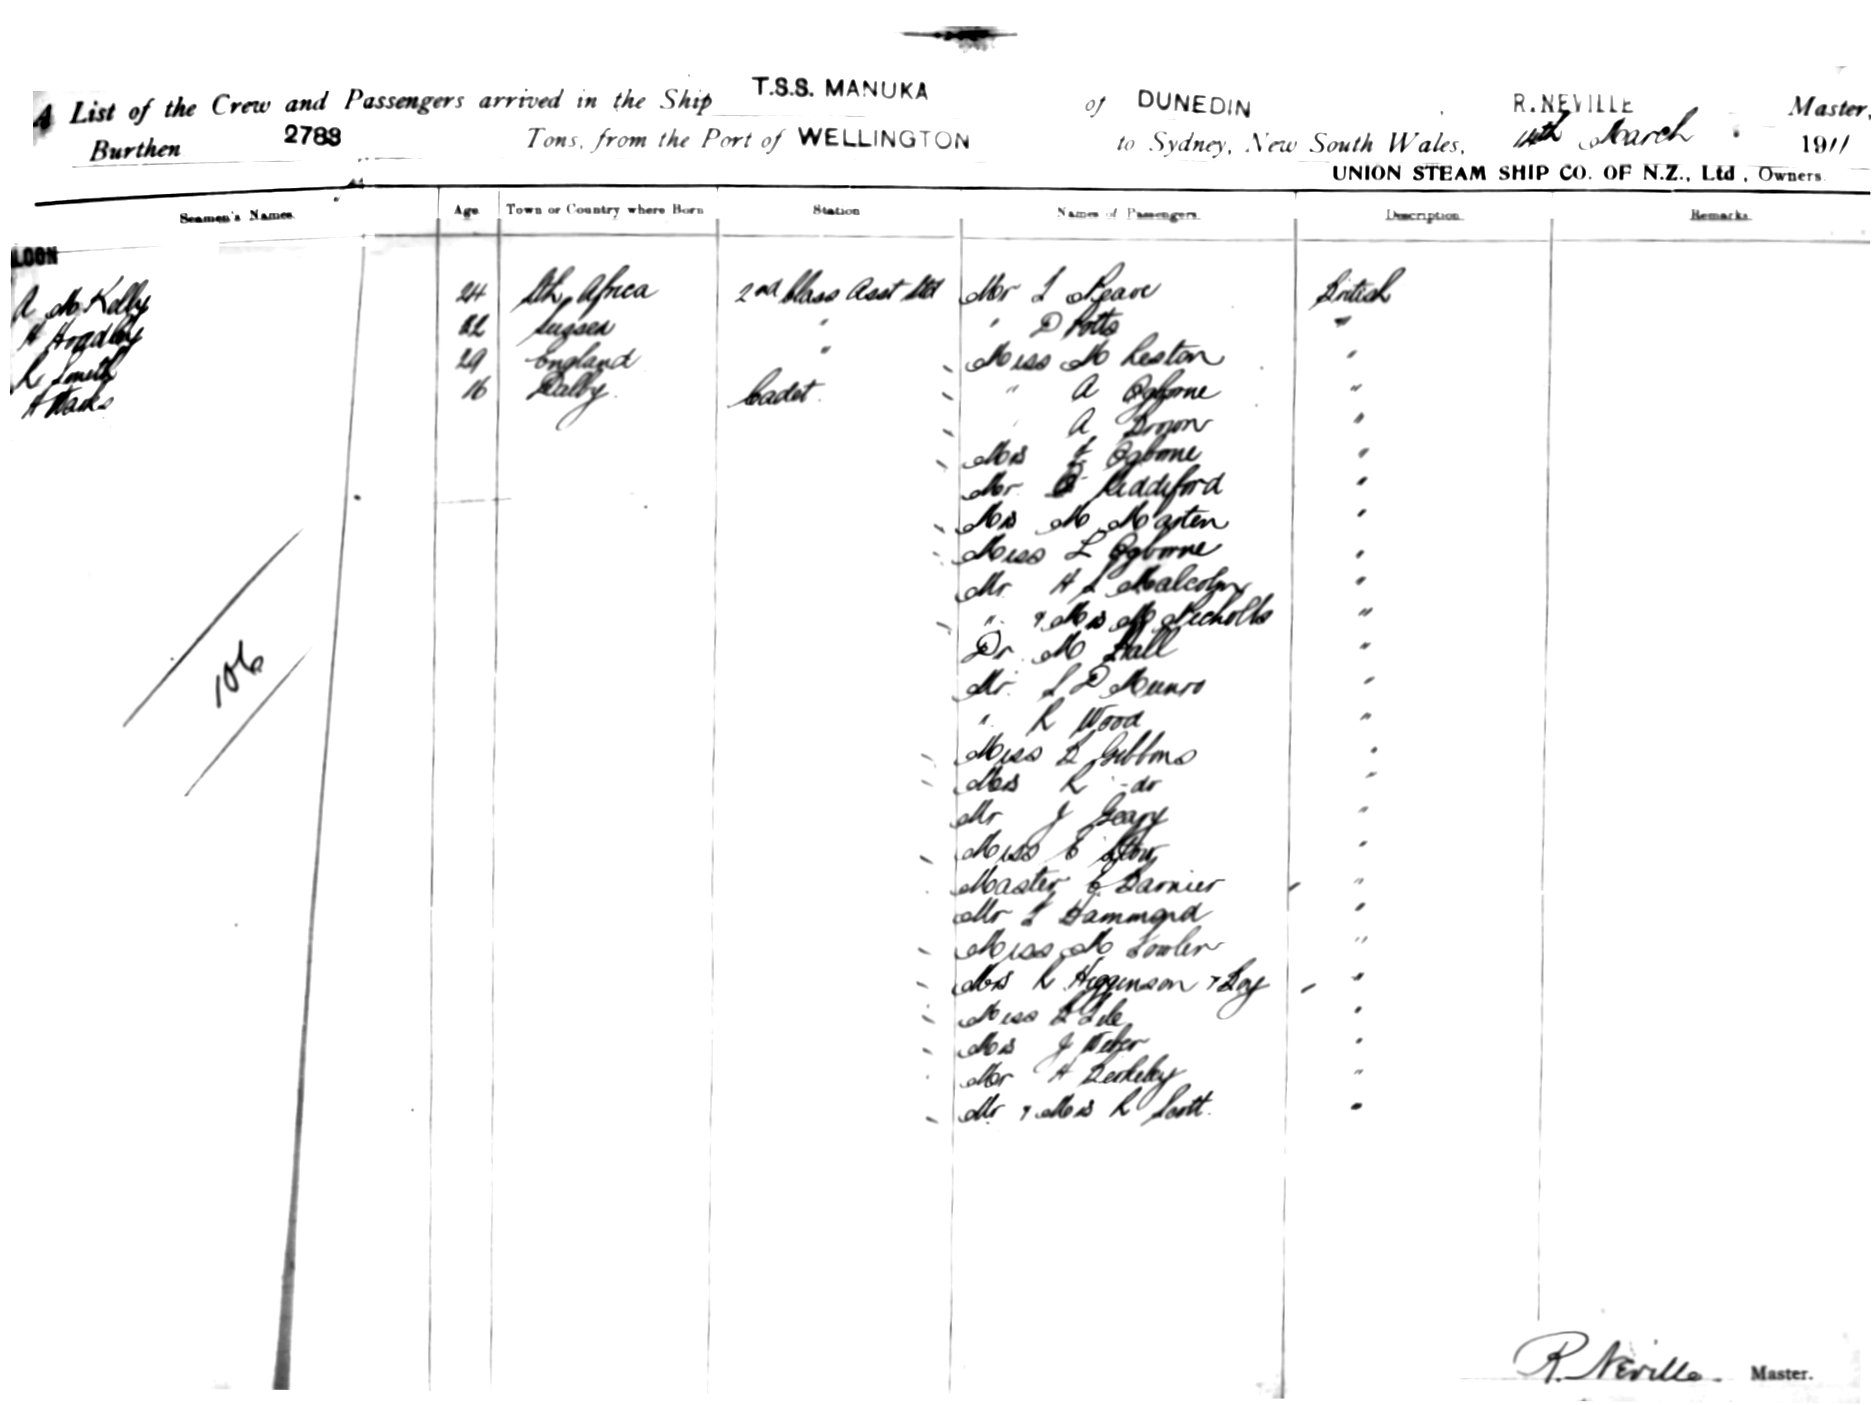 A List of the Crew and Passengers arrived in the Ship T.S.S. MANUKA of DUNEDIN R. NEVILLE Master,
Burthen 2788 Tons, from the Port of WELLINGTON to Sydney, New South Wales, 14th March 1911
UNION STEAM SHIP CO. OF N.Z., Ltd, Owners.
Seamen's Names. Age Town or Country where Born Station Names of Passengers. Description. Remarks.
LOON
A McKelly 24 Sth Africa 2nd Class Asst Std Mr L Reave British
H Hoadley 22 Sussex " " D Potts "
R Smith 29 England " Miss M Reston "
H Marks 16 Dalby. Cadet. " A Ogborne "
" A Brown "
Mrs Ogborne "
Mr Riddiford "
Mrs M Marten "
Miss L Ogborne "
Mr H L Malcolm "
" & Mrs M Nicholls "
106
Dr M Hall "
Mr L D Munro "
" R Wood "
Miss D Gibbons "
Mrs R -do "
Mr J Geary "
Miss E "
Master E Barnier "
Mr L Hammond "
Miss M Fowler "
Mrs R Higginson & Boy "
Miss "
Mrs J Weber "
Mr H Berkeley "
Mr & Mrs R Scott. "
R. Neville. Master.